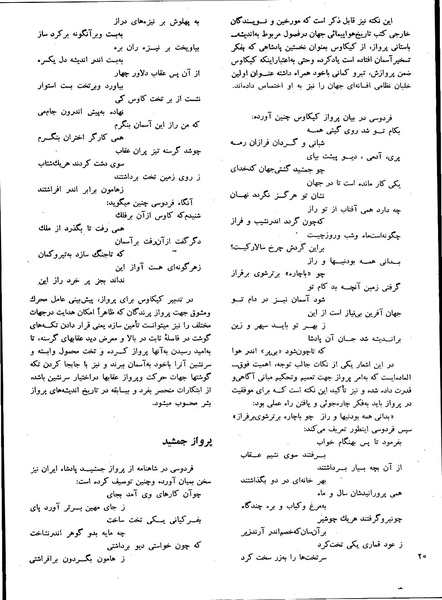 این نکته نیز قابل ذکر است که مورخین و نویسندگان
خارجی کتب تاریخ هواپیمائی جهان درفصول مربوط به اندیشه
باستانی پرواز، از کیکاوس بعنوان نخستین پادشاهی که بفکر
تسخیر آسمان افتاده است یادکرده وحتی به اعتبار اینکه کیکاوس
ضمن پروازش، تیرو کمانی باخود همراه داشته عنوان اولین
خلبان نظامی افسانه‌ای جهان را نیز به او اختصاص داده‌اند.
فردوسی در بیان پرواز کیکاوس چنین آورده:
بکام تو شد روی گیتی همه
شبانی و گردان فرازان رمه
پری، آدمی، دیو پیشت بپای
چو جمشید گشتی جهان کدخدای
یکی کار مانده است تا در جهان
نشان تو هرگز نگردد نهان
چه دارد همی آفتاب از تو راز
که چون گردد اندر نشیب و فراز
چگونه است ماه وشب وروز چیست
براین گردش چرخ سالار کیست؟
بدانی همه بودنیها و راز
چو «باچاره» برترشوی برفراز
گرفتی زمین آنچه بد کام تو
شود آسمان نیز در دام تو
جهان آفرین بی‌نیاز است از این
ز بهر تو باید سپهر و زین
براندیشه شد جان آن پادشا
که تاچون شود «بی‌پر» اندر هوا
در این اشعار یکی از نکات جالب توجه، اهمیت فوق
العاده‌ایست که به امر پرواز جهت تعمیم وتحکیم مبانی آگاهی و
قدرت داده شده و نیز تأکید این نکته است که برای موفقیت
در پرواز باید به‌فکر چاره‌جوئی و یافتن راه عملی بود:
«بدانی همه بودنیها و راز چو باچاره برترشوی برفراز»
سپس فردوسی اینطور تعریف میکند:
بفرمود تا پس بهنگام خواب
برفتند سوی نشیم عقاب
از آن بچه بسیار برداشتند
بهر خانه‌ای در دو بگذاشتند
همی پرورانیدشان سال و ماه
به‌مرغ وکباب و بره چندگاه
چونیرو گرفتند هریک چوشیر
بر آن سان که غرم اندر آرند زیر
ز عود قماری یکی تخت کرد
سرتختها را به‌زر سخت کرد
۲۰
به پهلوش بر نیزه‌های دراز
به‌بست وبر آنگونه برکرد ساز
بیاویخت بر نیزه ران بره
به‌بست اندر اندیشه دل یکسره
از آن پس عقاب دلاور چهار
بیاورد وبرتخت بست استوار
نشست از بر تخت کاوس کی
نهاده به‌پیش اندرون جام‌می
که من راز این آسمان بنگرم
همی کارگر اختران بنگرم
چوشد گرسنه تیز پران عقاب
سوی گوشت کردند هریک شتاب
ز روی زمین تخت برداشتند
زهامون برابر اندر افراشتند
آنگاه فردوسی چنین میگوید:
شنیدم که کاوس از آن برفلک
همی رفت تا بگذرد از ملک
دگر گفت از آن رفت بر آسمان
که تاجنگ سازد به‌تیروکمان
زهرگونه‌ای هست آواز این
نداند بجز پر خرد راز این
در تدبیر کیکاوس برای پرواز، پیش‌بینی عامل محرک
ومشوق جهت پرواز پرندگان که ظاهراً امکان هدایت درجهات
مختلف را نیز میتوانست تأمین سازد یعنی قرار دادن تکه‌های
گوشت در فاصلهٔ ثابت در بالا و معرض دید عقابهای گرسنه، تا
به‌امید رسیدن به‌آنها پرواز کرده و تخت محمول وابسته و
سرنشین آنرا باخود به‌آسمان ببرند و نیز با جابجا کردن تکه
گوشتها جهات حرکت وپرواز عقابها دراختیار سرنشین باشد،
از ابتکارات منحصر بفرد و بیسابقه در تاریخ اندیشه‌های پرواز
بشر محسوب میشود.
پرواز جمشید
فردوسی در شاهنامه از پرواز جمشید پادشاه ایران نیز
سخن بمیان آورده وچنین توصیف کرده است:
چو آن کارهای وی آمد بجای
ز جای مهین برتر آورد پای
بفر کیانی یکی تخت ساخت
چه مایه بدو گوهر اندر نشاخت
که چون خواستی دیو برداشتی
ز هامون بگردون برافراشتی